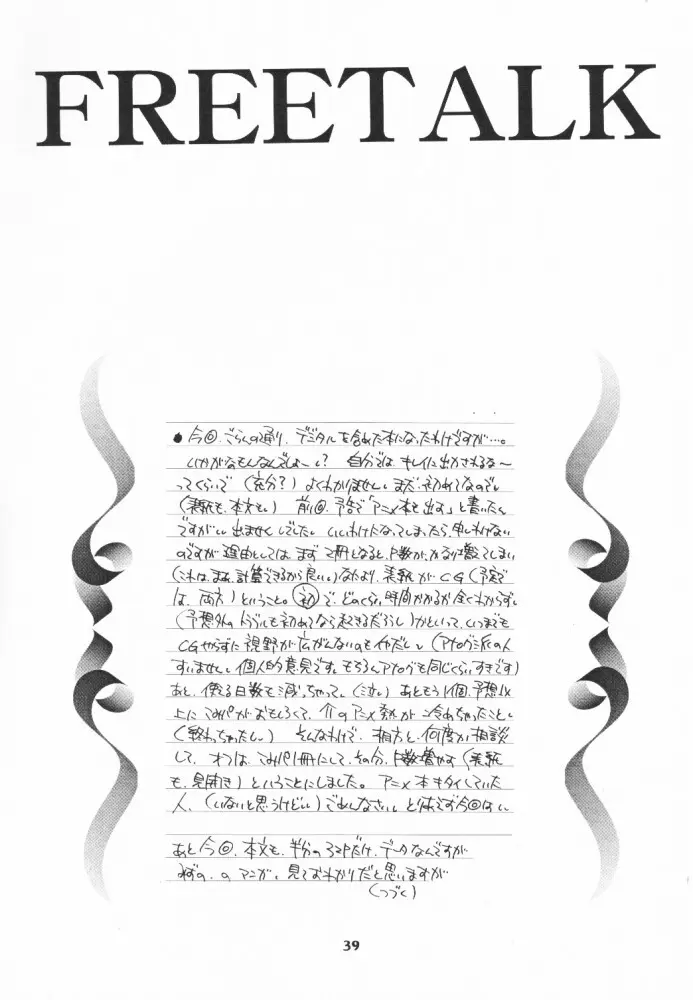 FREETALK
●今回、ごらんの通り、デジタルを含めた本になったわけですが…。
いかがなもんなんでしょーい? 自分では キレイに出かされるな〜
ってくらいで (充分?) よくわかりません。まだ、初めてなので。
(表紙も、本文も。) 前回、予告で「アニメ本を出す」と書いたん
ですがい、出ませんでした。いいわけになってしまったら、申しわけない
のですが 理由としては まず 2冊になると 頁数が、かなり増えてしまい
(これは、まあ、計算できるから良い。) なにより、表紙がCG(予定で
は、両方)ということ。初で、どのくらい時間かかるか全くわからず。
(予想外のトラブルも初めてなら起きるだろうし)かといって、いつまでも
CGやらずに視野が広がんないのもイヤだし。(アナログ派の人
すいません。個人的意見です。もちろんアナログも同じくらいすきです)
あと、使える日数も減っちゃって。(泣) あともう1個、予想以
上に こみパがおもしろくて、 のアニメ熱が 冷めちゃったこと。
(終わっちゃったし。) そんなわけで、相方と、何度か相談
して、オフは、こみパ1冊にして、その分、頁数増やす(表紙
も、見開き)ということにしました。アニメ本キタイしていた
人、(いないと思うけどい)ごめんなさい。とりあえず今回は
あと今回、本文も、半分のコマだけ、データなんですが
 のマンガ、見ておわかりだと思いますが
(つづく)
39